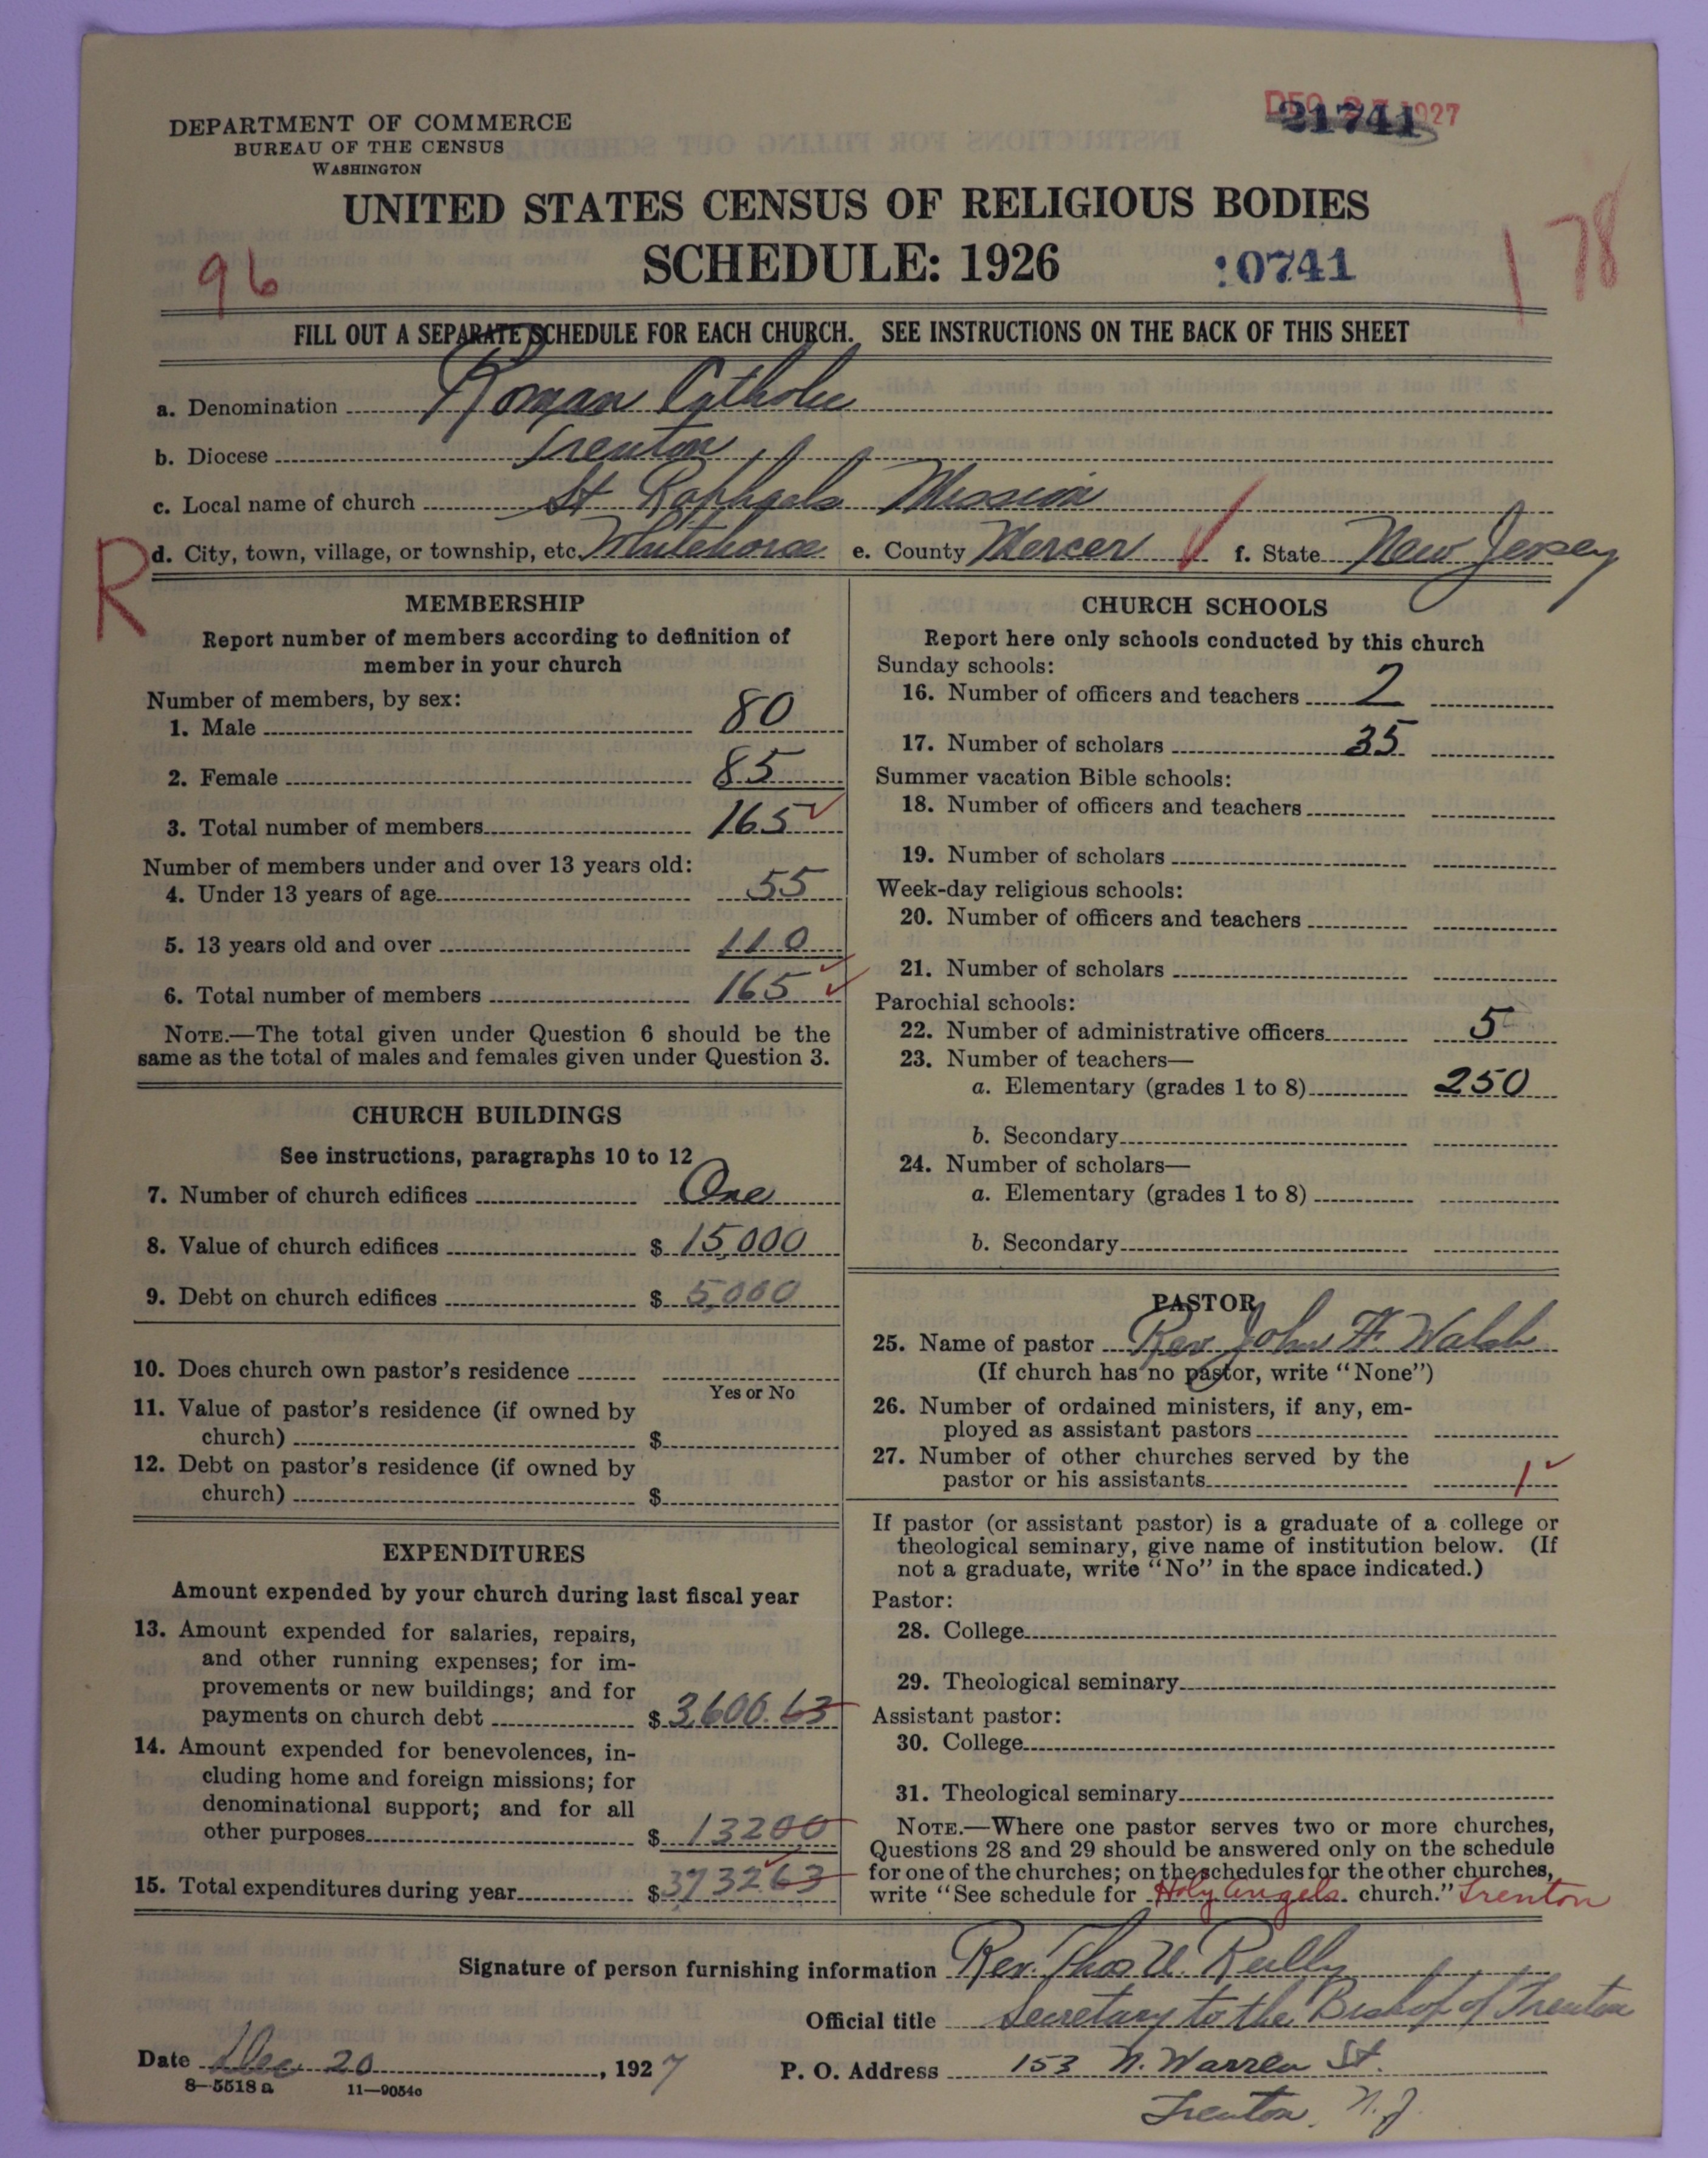 DEC 27 1927
21741
DEPARTMENT OF COMMERCE
BUREAU OF THE CENSUS
WASHINGTON
UNITED STATES CENSUS OF RELIGIOUS BODIES
SCHEDULE: 1926
:0741
96
178
FILL OUT A SEPARATE SCHEDULE FOR EACH CHURCH. SEE INSTRUCTIONS ON THE BACK OF THIS SHEET
a. Denomination Roman Catholic
b. Diocese Trenton
c. Local name of church St Raphaels Mission
d. City, town, village, or township, etc. Whitehorse e. County Mercer f. State New Jersey
R
MEMBERSHIP
Report number of members according to definition of
member in your church
Number of members, by sex:
1. Male 80
2. Female 85
3. Total number of members 165
Number of members under and over 13 years old:
4. Under 13 years of age 55
5. 13 years old and over 110
6. Total number of members 165
NOTE.—The total given under Question 6 should be the
same as the total of males and females given under Question 3.
CHURCH BUILDINGS
See instructions, paragraphs 10 to 12
7. Number of church edifices One
8. Value of church edifices $ 15,000
9. Debt on church edifices $ 5,000
10. Does church own pastor's residence
Yes or No
11. Value of pastor's residence (if owned by
church) $
12. Debt on pastor's residence (if owned by
church) $
EXPENDITURES
Amount expended by your church during last fiscal year
13. Amount expended for salaries, repairs,
and other running expenses; for im-
provements or new buildings; and for
payments on church debt $ 3,600.63
14. Amount expended for benevolences, in-
cluding home and foreign missions; for
denominational support; and for all
other purposes $ 13200
15. Total expenditures during year $ 373263
CHURCH SCHOOLS
Report here only schools conducted by this church
Sunday schools:
16. Number of officers and teachers 2
17. Number of scholars 35
Summer vacation Bible schools:
18. Number of officers and teachers
19. Number of scholars
Week-day religious schools:
20. Number of officers and teachers
21. Number of scholars
Parochial schools:
22. Number of administrative officers 5
23. Number of teachers—
a. Elementary (grades 1 to 8) 250
b. Secondary
24. Number of scholars—
a. Elementary (grades 1 to 8)
b. Secondary
PASTOR
25. Name of pastor Rev John F. Walsh
(If church has no pastor, write "None")
26. Number of ordained ministers, if any, em-
ployed as assistant pastors
27. Number of other churches served by the
pastor or his assistants 1
If pastor (or assistant pastor) is a graduate of a college or
theological seminary, give name of institution below. (If
not a graduate, write "No" in the space indicated.)
Pastor:
28. College
29. Theological seminary
Assistant pastor:
30. College
31. Theological seminary
NOTE.—Where one pastor serves two or more churches,
Questions 28 and 29 should be answered only on the schedule
for one of the churches; on the schedules for the other churches,
write "See schedule for Holy Angels church." Trenton
Signature of person furnishing information Rev. Thos U. Reilly
Official title Secretary to the Bishop of Trenton
Date Dec 20, 1927 P. O. Address 153 N. Warren St.
Trenton, N.J.
8—5518 a 11—9054c